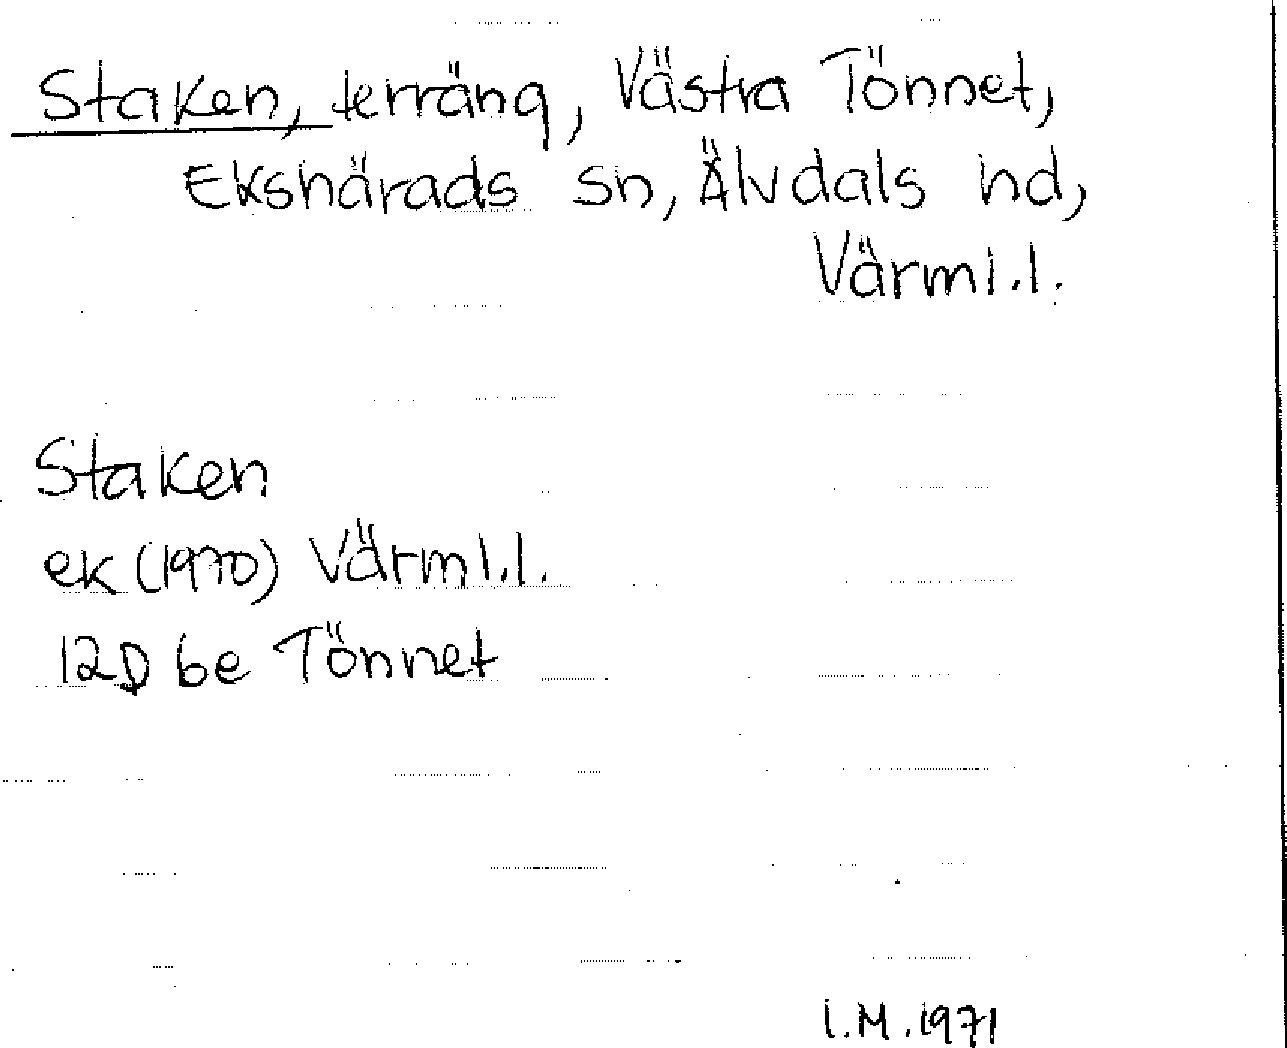 Staken, terräng, Västra Tönnet,
Ekshärads sn, Älvdals hd,
Värml.l.
Staken
ek (1970) Värml.l.
12D 6e Tönnet
I.M. 1971